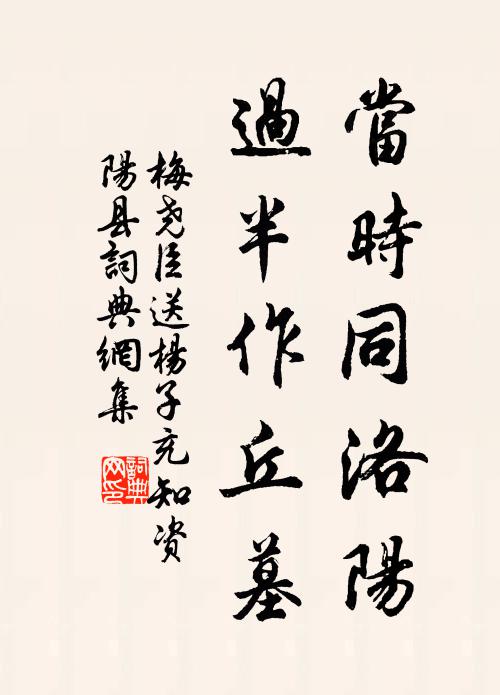 當時同洛陽
過半作丘墓
梅尧臣送楊子充知资
陽县詞典網集
詞典
网印